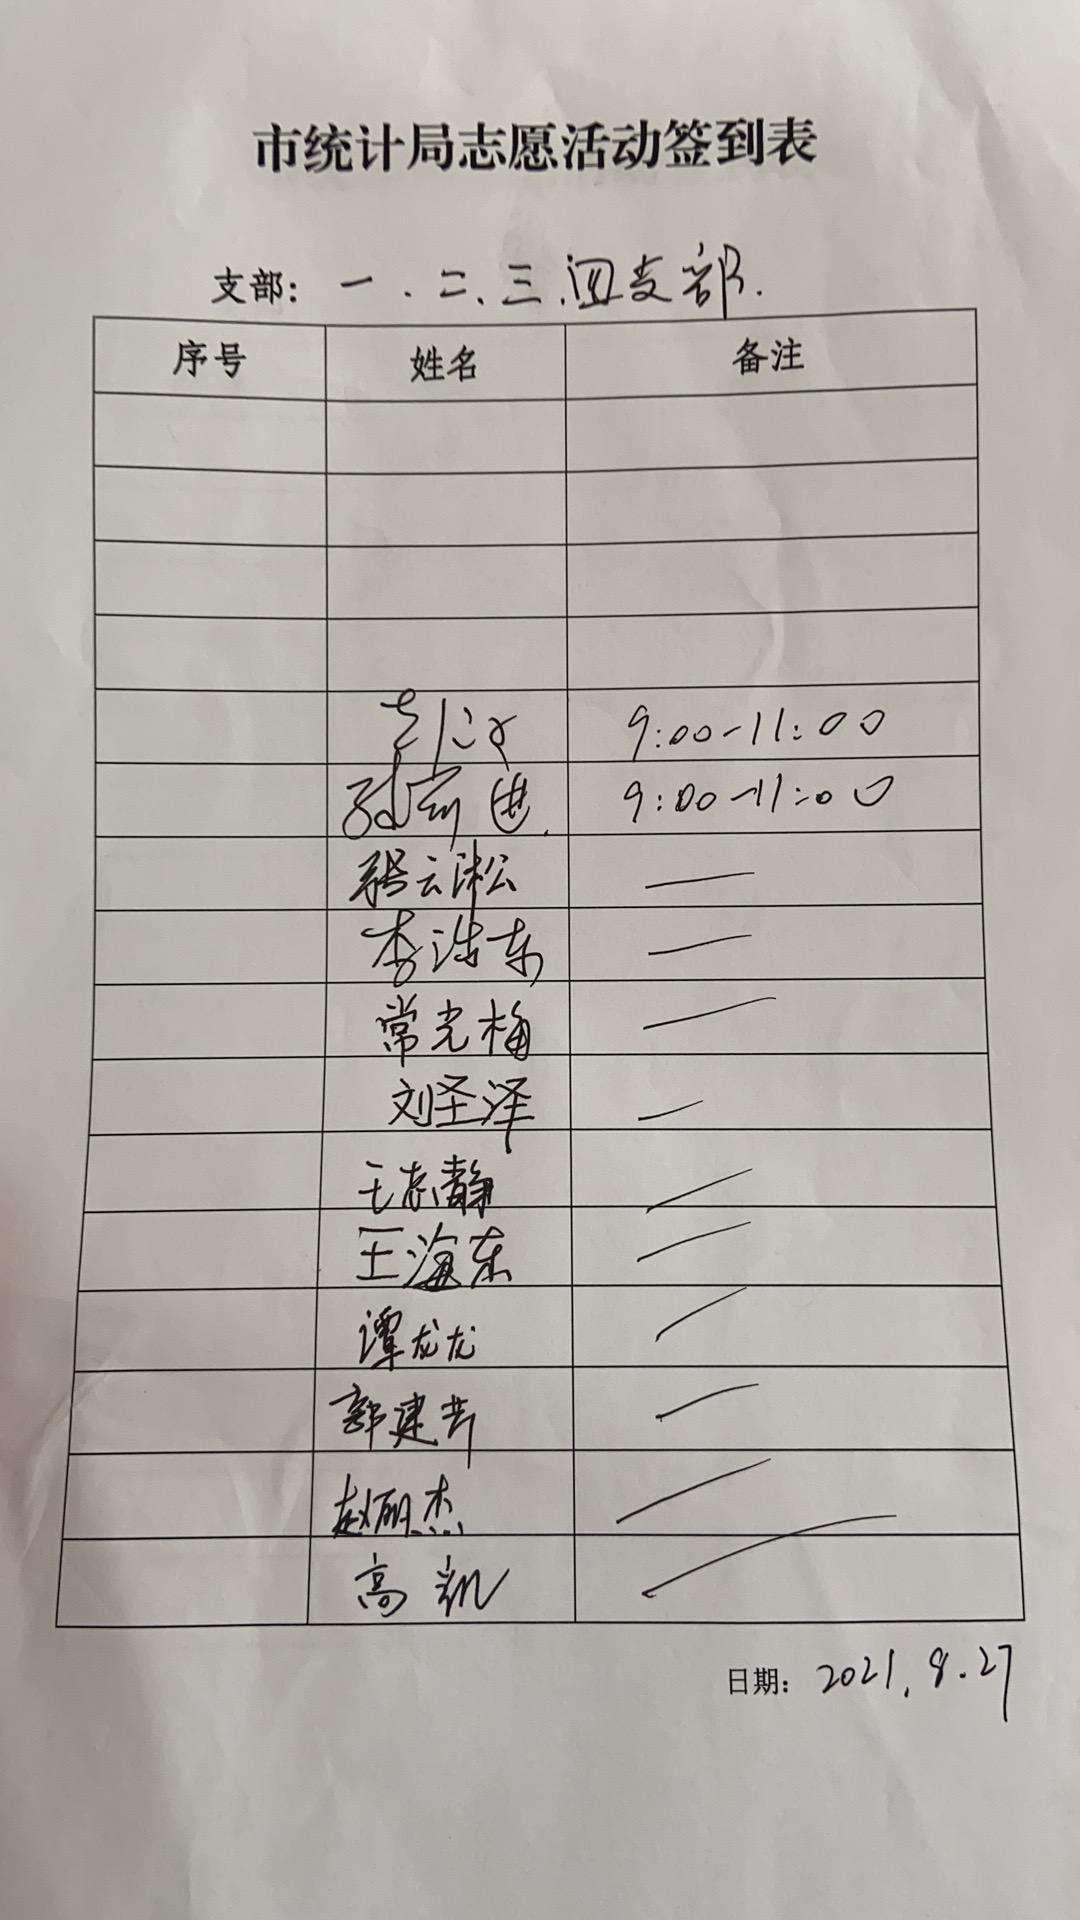 市统计局志愿活动签到表
支部：一、二、三、四支部.
序号 姓名 备注
9:00-11:00
孙 9:00-11:00
张云淞 —
李浩东 —
常光梅 —
刘圣泽 —
王志静 —
王海东 —
谭龙龙 —
郭建芳 —
赵丽杰 —
高凯 —
日期：2021.8.27